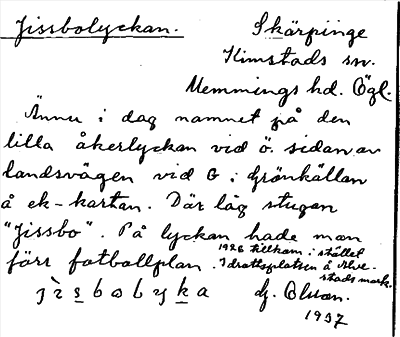 Jissbolyckan.
Skärpinge
Kimstads sn.
Memmings hd. Ögl.
Ännu i dag namnet på den
lilla åkerlyckan vid ö. sidan av
landsvägen vid G i Grönkällan
å ek-kartan. Där låg stugan
"Jissbo". På lyckan hade man
förr fotbollplan. 1926 tillkom i stället
Idrottsplatsen å
stads mark.
G. Olson.
1937